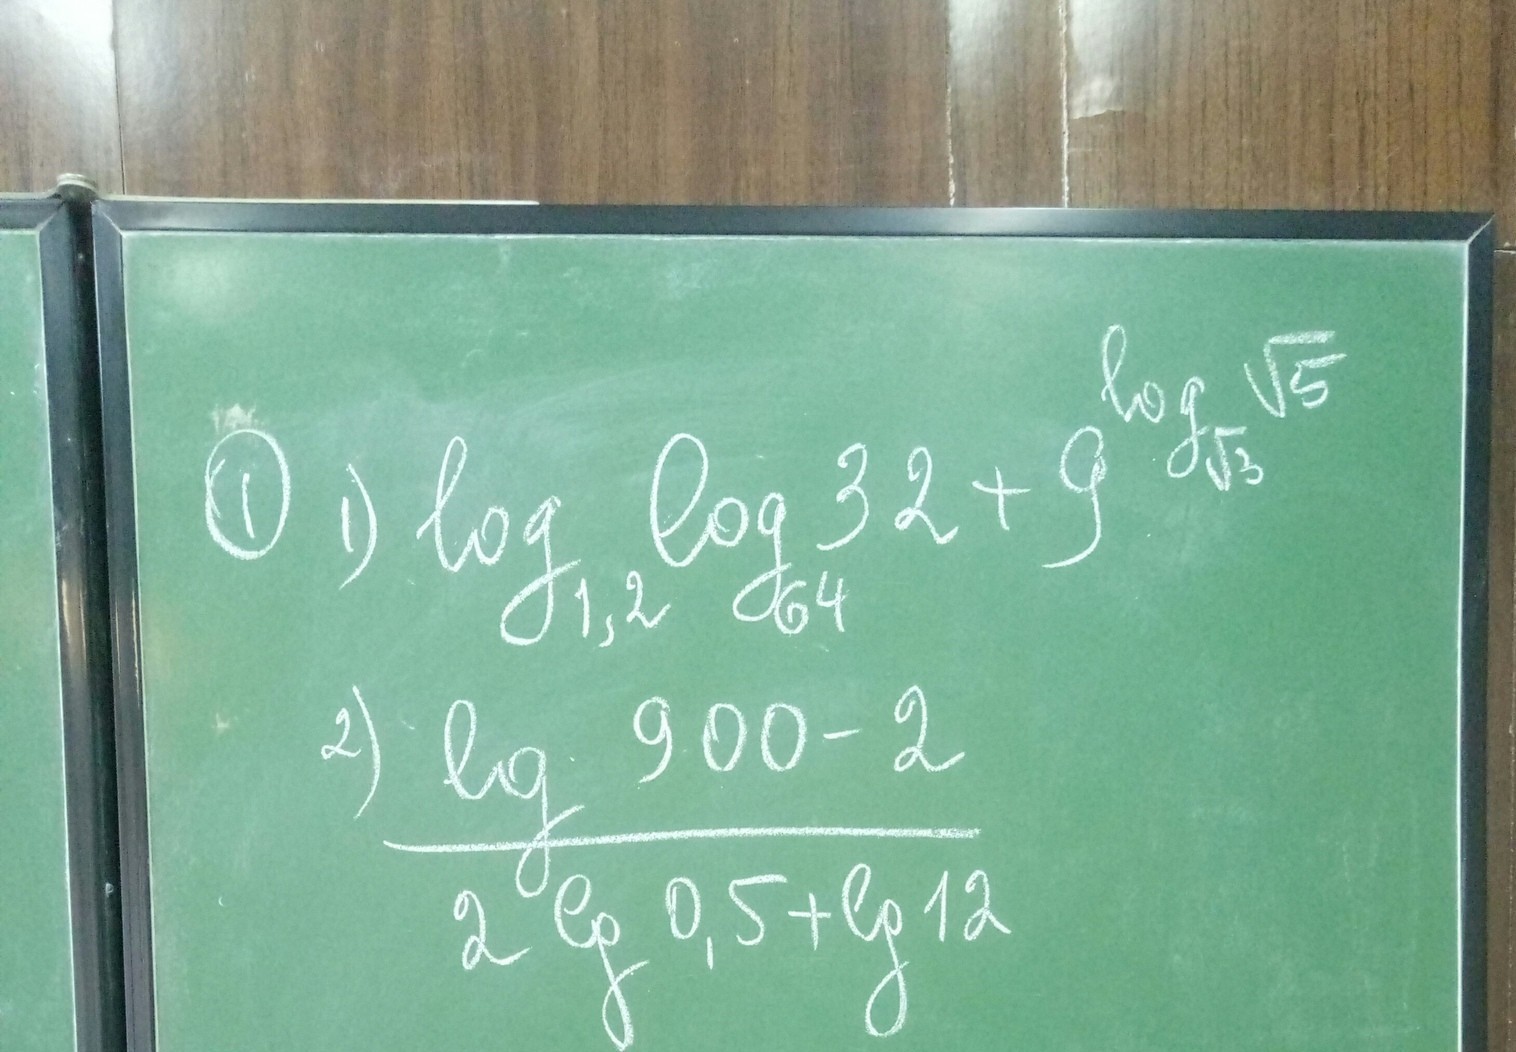 ① 1) log₁,₂ log₆₄ 32 + 9^(log_√3 √5)
2) lg 900 - 2
2 lg 0,5 + lg 12